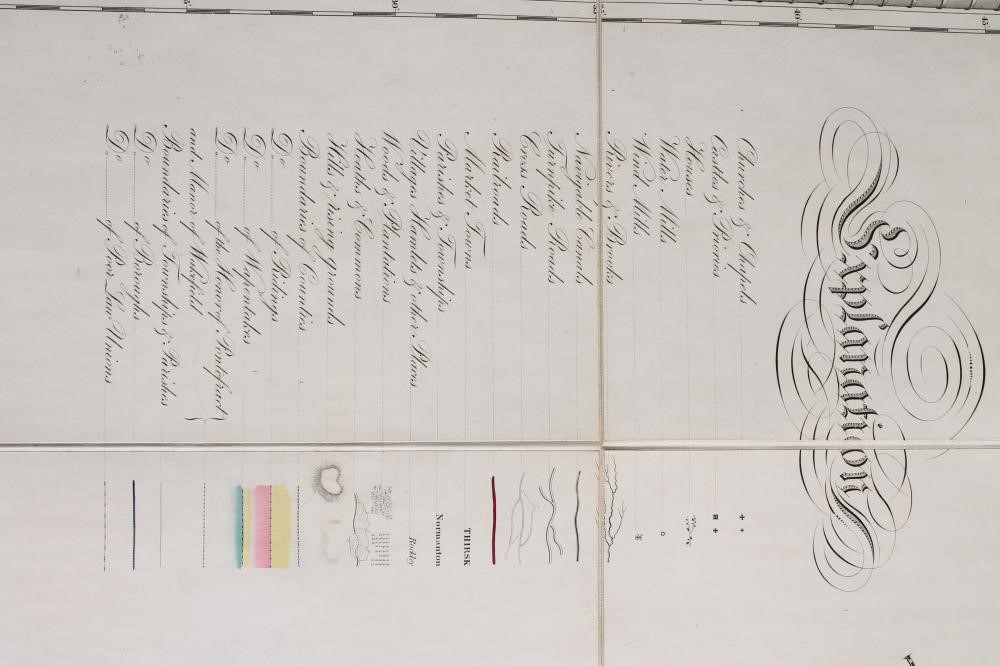 Explanation
Churches & Chapels
Castles & Priories
Houses
Water Mills
Wind Mills
Rivers & Brooks
Navigable Canals
Turnpike Roads
Cross Roads
Railroads
Market Towns THIRSK
Parishes & Townships Normanton
Villages Hamlets & other Places Rockley
Woods & Plantations
Heaths & Commons
Hills & rising grounds
Boundaries of Counties
Do of Ridings
Do of Wapentakes
Do of the Honor of Pontefract
and Manor of Wakefield
Boundaries of Townships & Parishes
Do of Boroughs
Do of Poor Law Unions
40'
45'